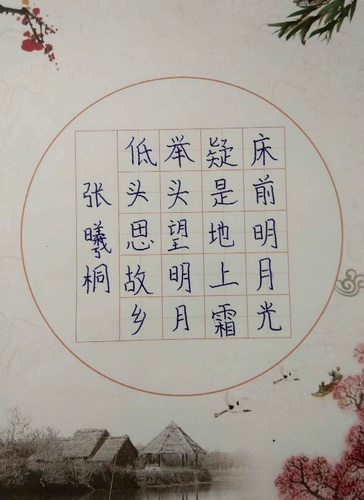 床前明月光
疑是地上霜
举头望明月
低头思故乡
张曦桐